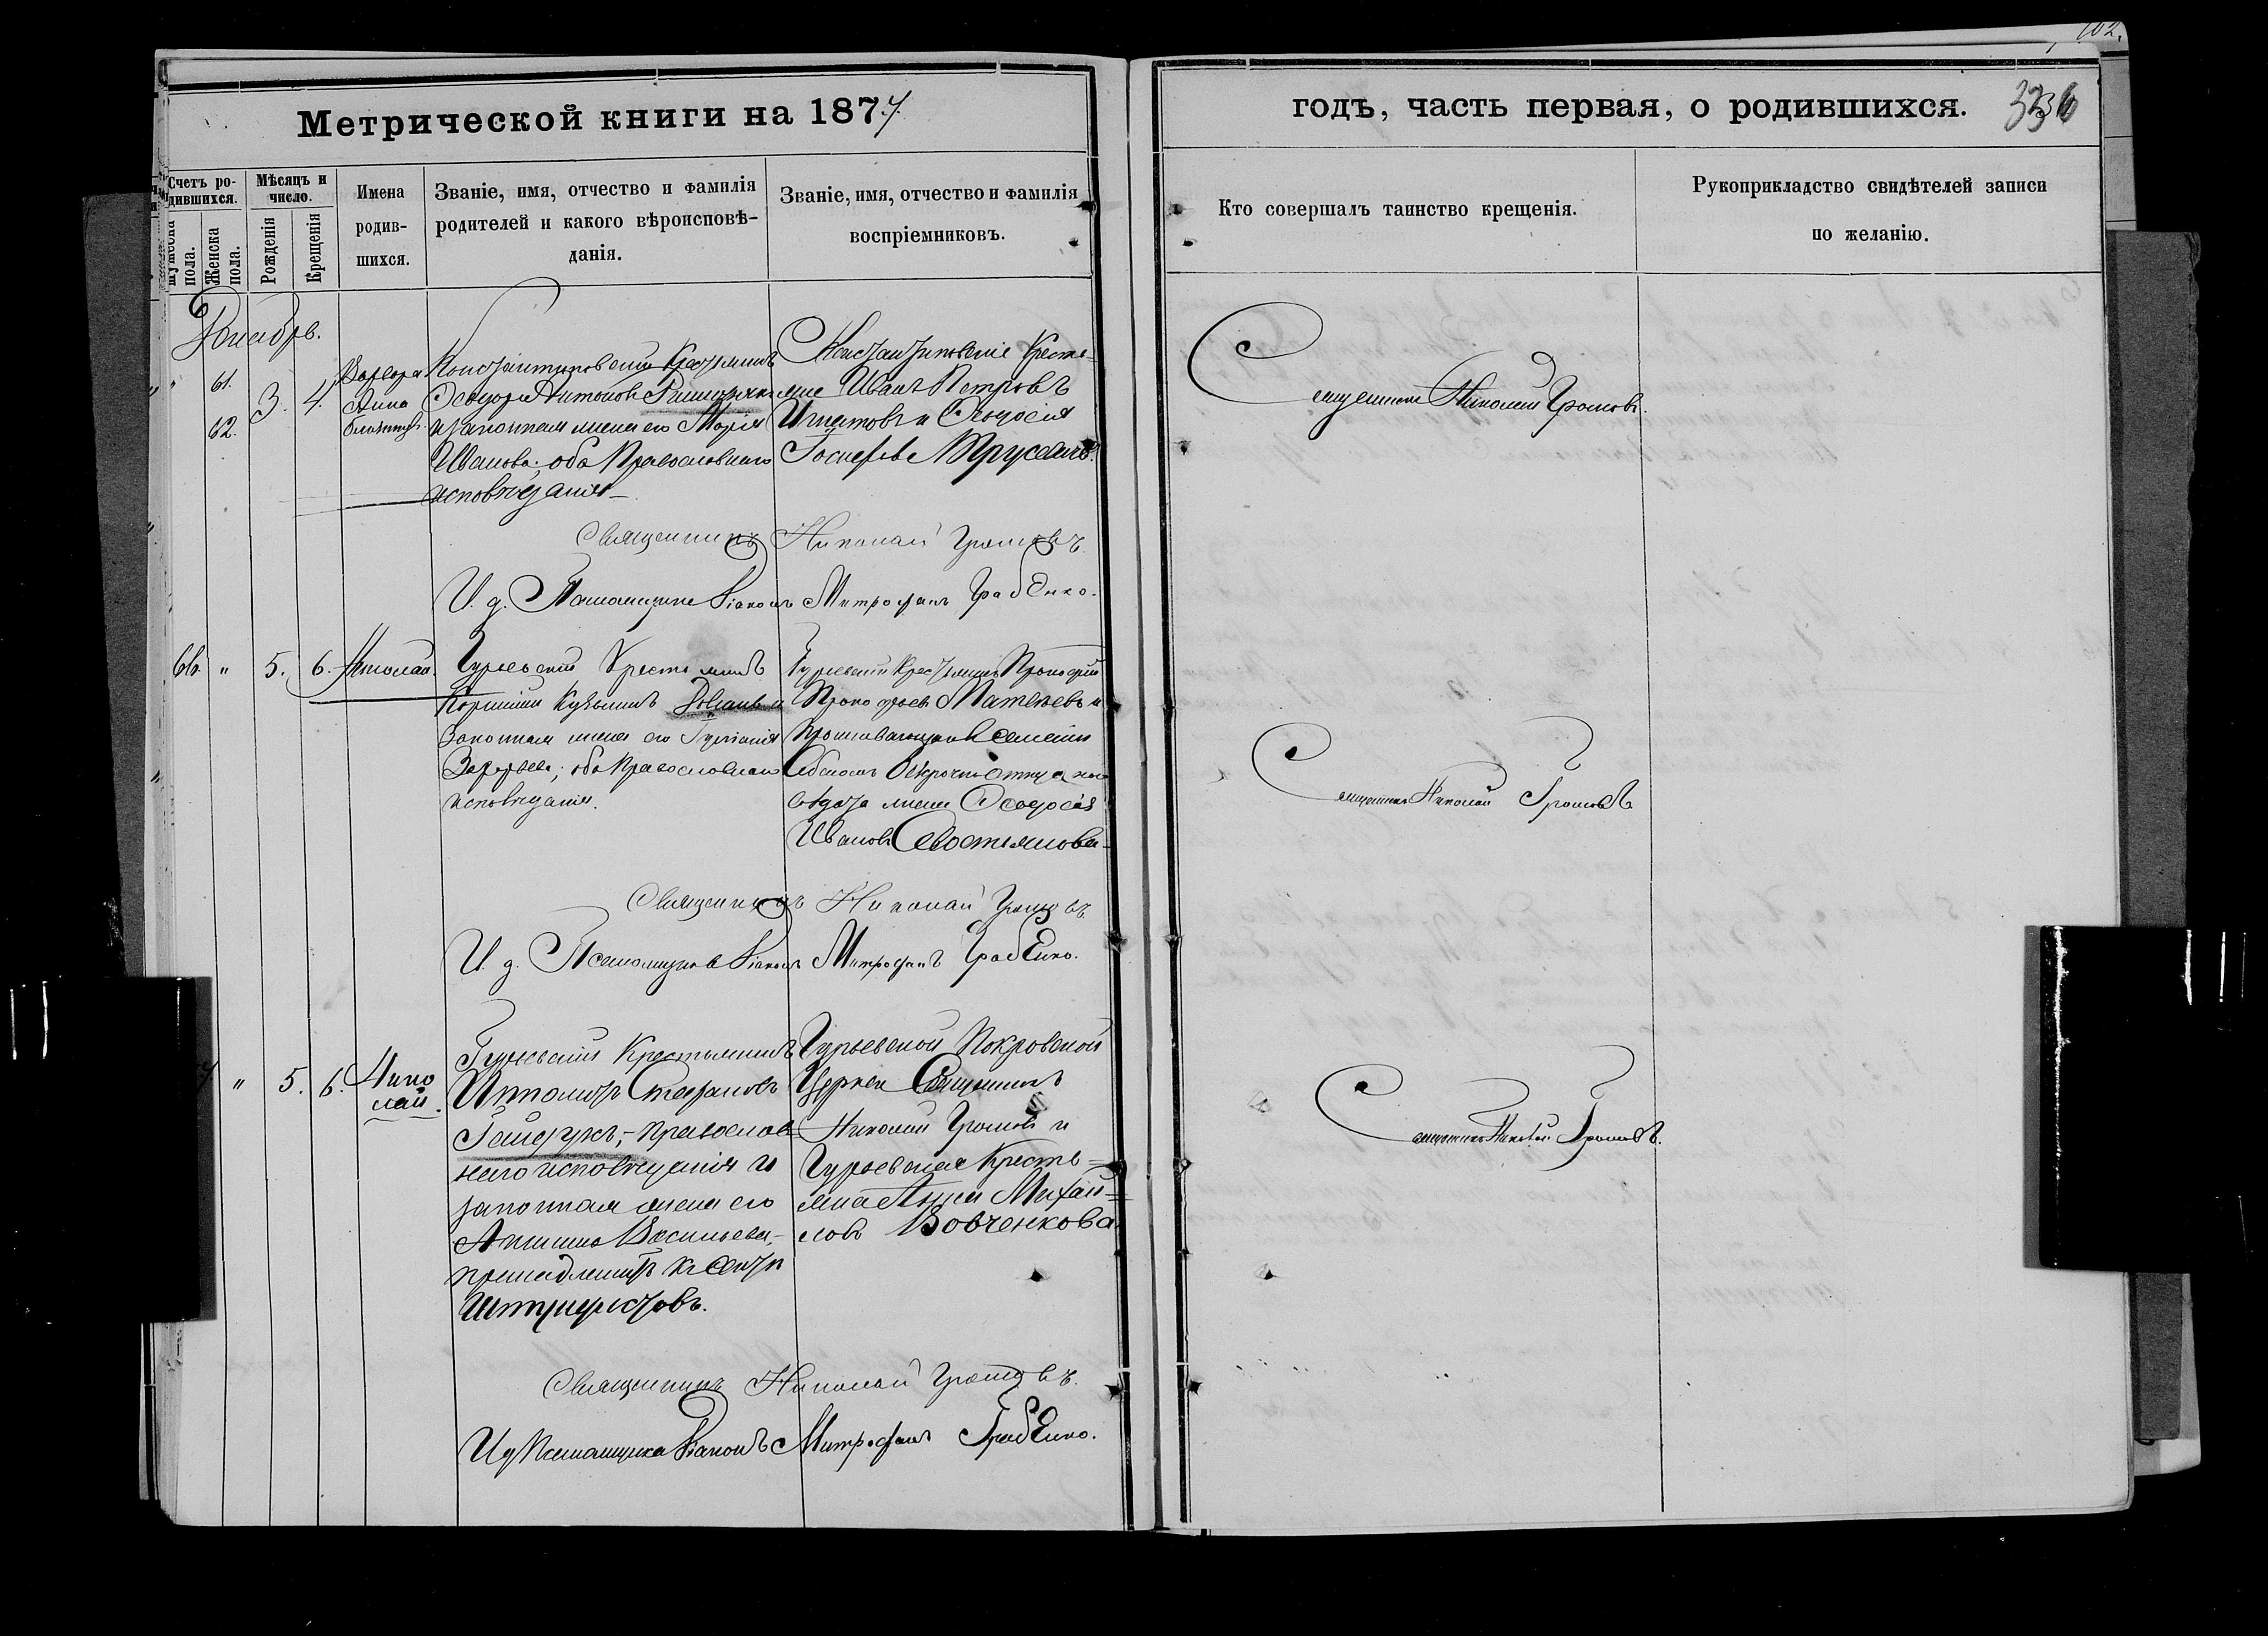 102.
Метрической книги на 1877.
годъ, часть первая, о родившихся.
Счетъ ро-
дившихся.
Мѣсяцъ и
число.
Имена
родив-
шихся.
Званіе, имя, отчество и фамилія
родителей и какого вѣроисповѣ-
данія.
Званіе, имя, отчество и фамилія
воспріемниковъ.
пола.
Женска
пола.
Рожденія
Крещенія
Кто совершалъ таинство крещенія.
Рукоприкладство свидѣтелей записи
по желанію.
Декабрь.
" 61. 62.
3. 4.
Варвара
Анна
близнецы
Константиновскій Крестьянинъ
Ѳеодоръ Антоновъ
и законная жена его Марія
Иванова; оба Православнаго
исповѣданія
Константиновскіе Кресть-
яне Иванъ Петровъ
Игнатовъ и Ѳеодосія
Священникъ Николай Громовъ.
Священникъ Николай Громовъ
И. д. Псаломщика Діаконъ Митрофанъ Грабенко.
66. " 5. 6. Николай.
Гурьевскій Крестьянинъ
Корнилій Кузьминъ
законная жена его
Захарьева; оба Православнаго
исповѣданія.
Гурьевскій Крестьянинъ Прокофій
Прокофьевъ Матвѣевъ и
жена Ѳеодосія
Иванова Севостьянова
Священникъ Николай Громовъ
Священникъ Николай Громовъ
И. д. Псаломщика Діаконъ Митрофанъ Грабенко.
" 5. 6. Нико
лай.
Гурьевскій Крестьянинъ
Ипполитъ Стефановъ
Гайдукъ, - православ
наго исповѣданія и
законная жена его
Васильева,
принадлежитъ къ сектѣ
Штундистовъ.
Гурьевской Покровской
Церкви Священникъ
Николай Громовъ и
Гурьевская Кресть=
янка Анна Михай=
лова Вовченкова
Священникъ Николай Громовъ.
Священникъ Николай Громовъ.
И д Псаломщика Діаконъ Митрофанъ Грабенко.